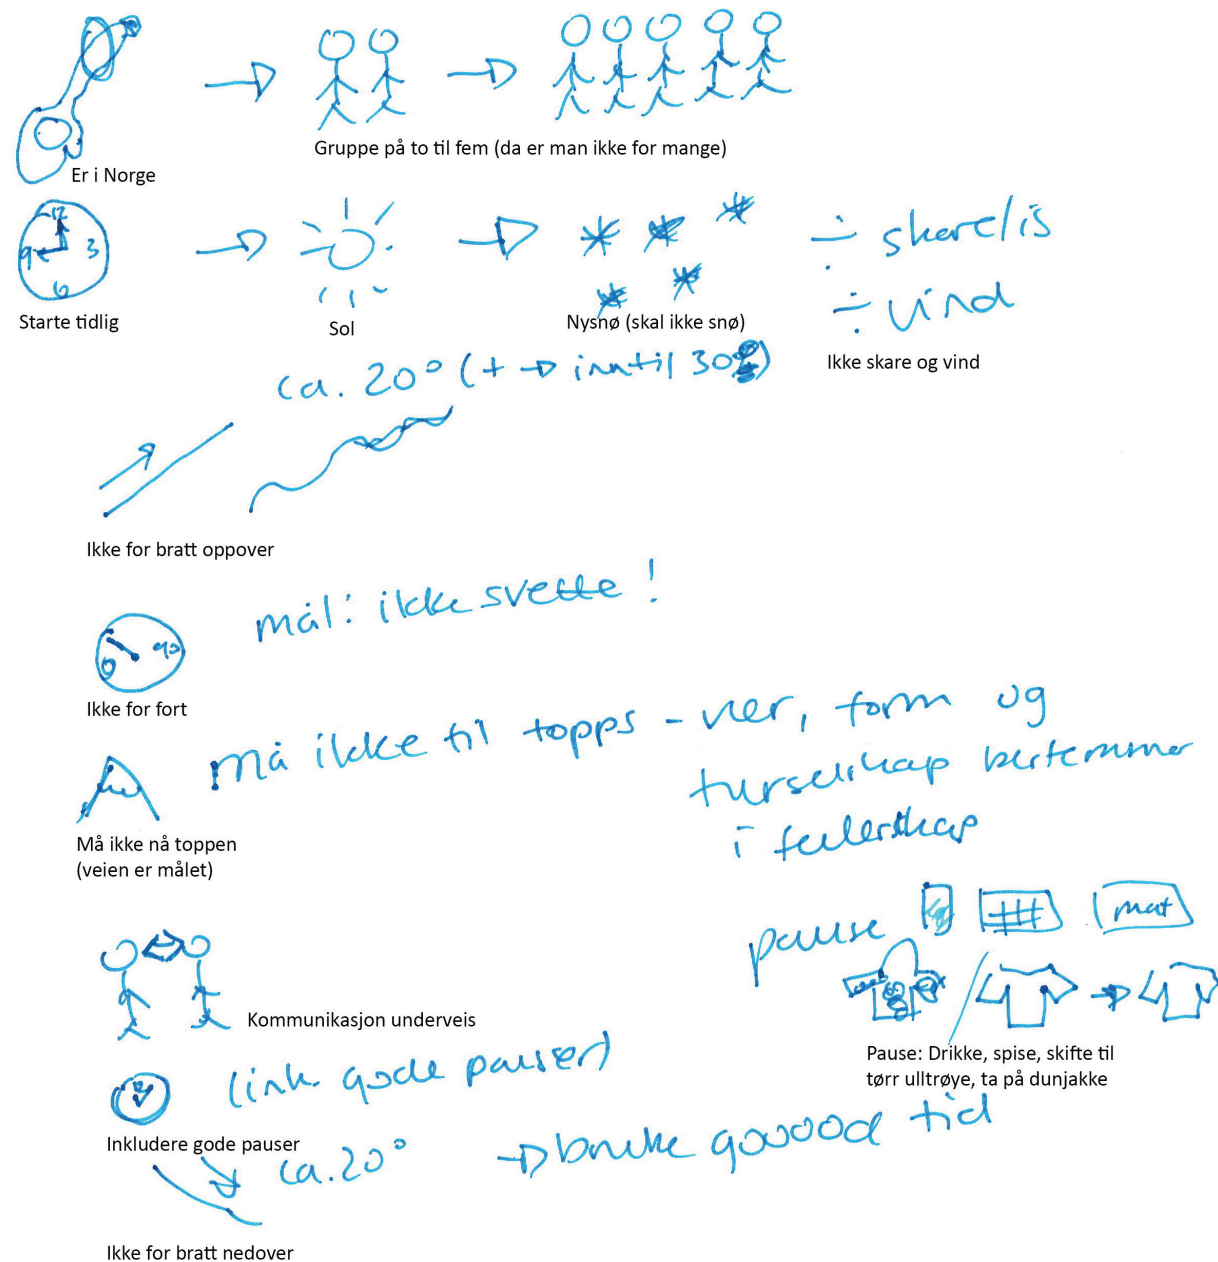 Er i Norge
Gruppe på to til fem (da er man ikke for mange)
12
9 3
6
Starte tidlig
Sol
Nysnø (skal ikke snø)
÷ skare/is
÷ vind
Ikke skare og vind
ca. 20° (+ → inntil 30°)
Ikke for bratt oppover
mål: ikke svette!
Ikke for fort
må ikke til topps - vær, form og
turselskap bestemmer
i fellerskap
Må ikke nå toppen
(veien er målet)
pause
mat
Kommunikasjon underveis
Pause: Drikke, spise, skifte til
tørr ulltrøye, ta på dunjakke
(ink. gode pauser)
Inkludere gode pauser
ca. 20° → bruke gooood tid
Ikke for bratt nedover